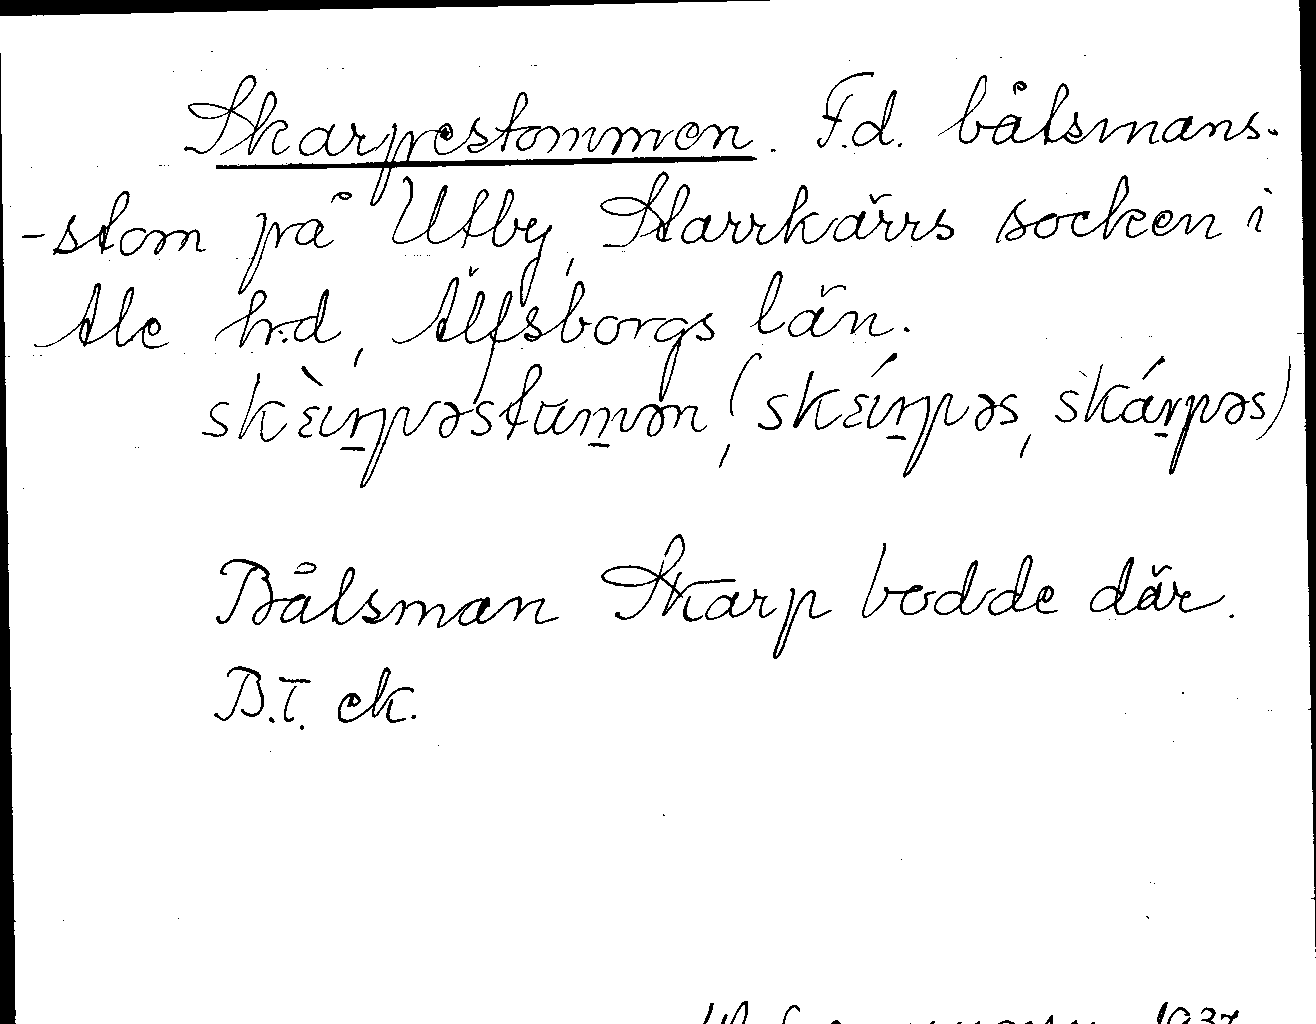 Skarpestommen. F.d. båtsmans-
-stom på Utby, Starrkärrs socken i
Ale h:d, Älfsborgs län.
skὲɩr̲pəstᴜm̲ən, (skέɩr̲pəs, skár̲pəs)
Båtsman Skarp bodde där.
B.T. ek.
1937